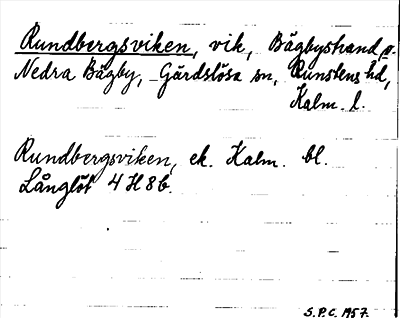 Rundbergsviken, vik, Bägbystrand, o.
Nedra Bägby, Gärdslösa sn, Runstens hd,
Kalm. l.
Rundbergsviken, ek. Kalm. bl.
Långlöt 4 H 8 b.
S.P.C. 1957.